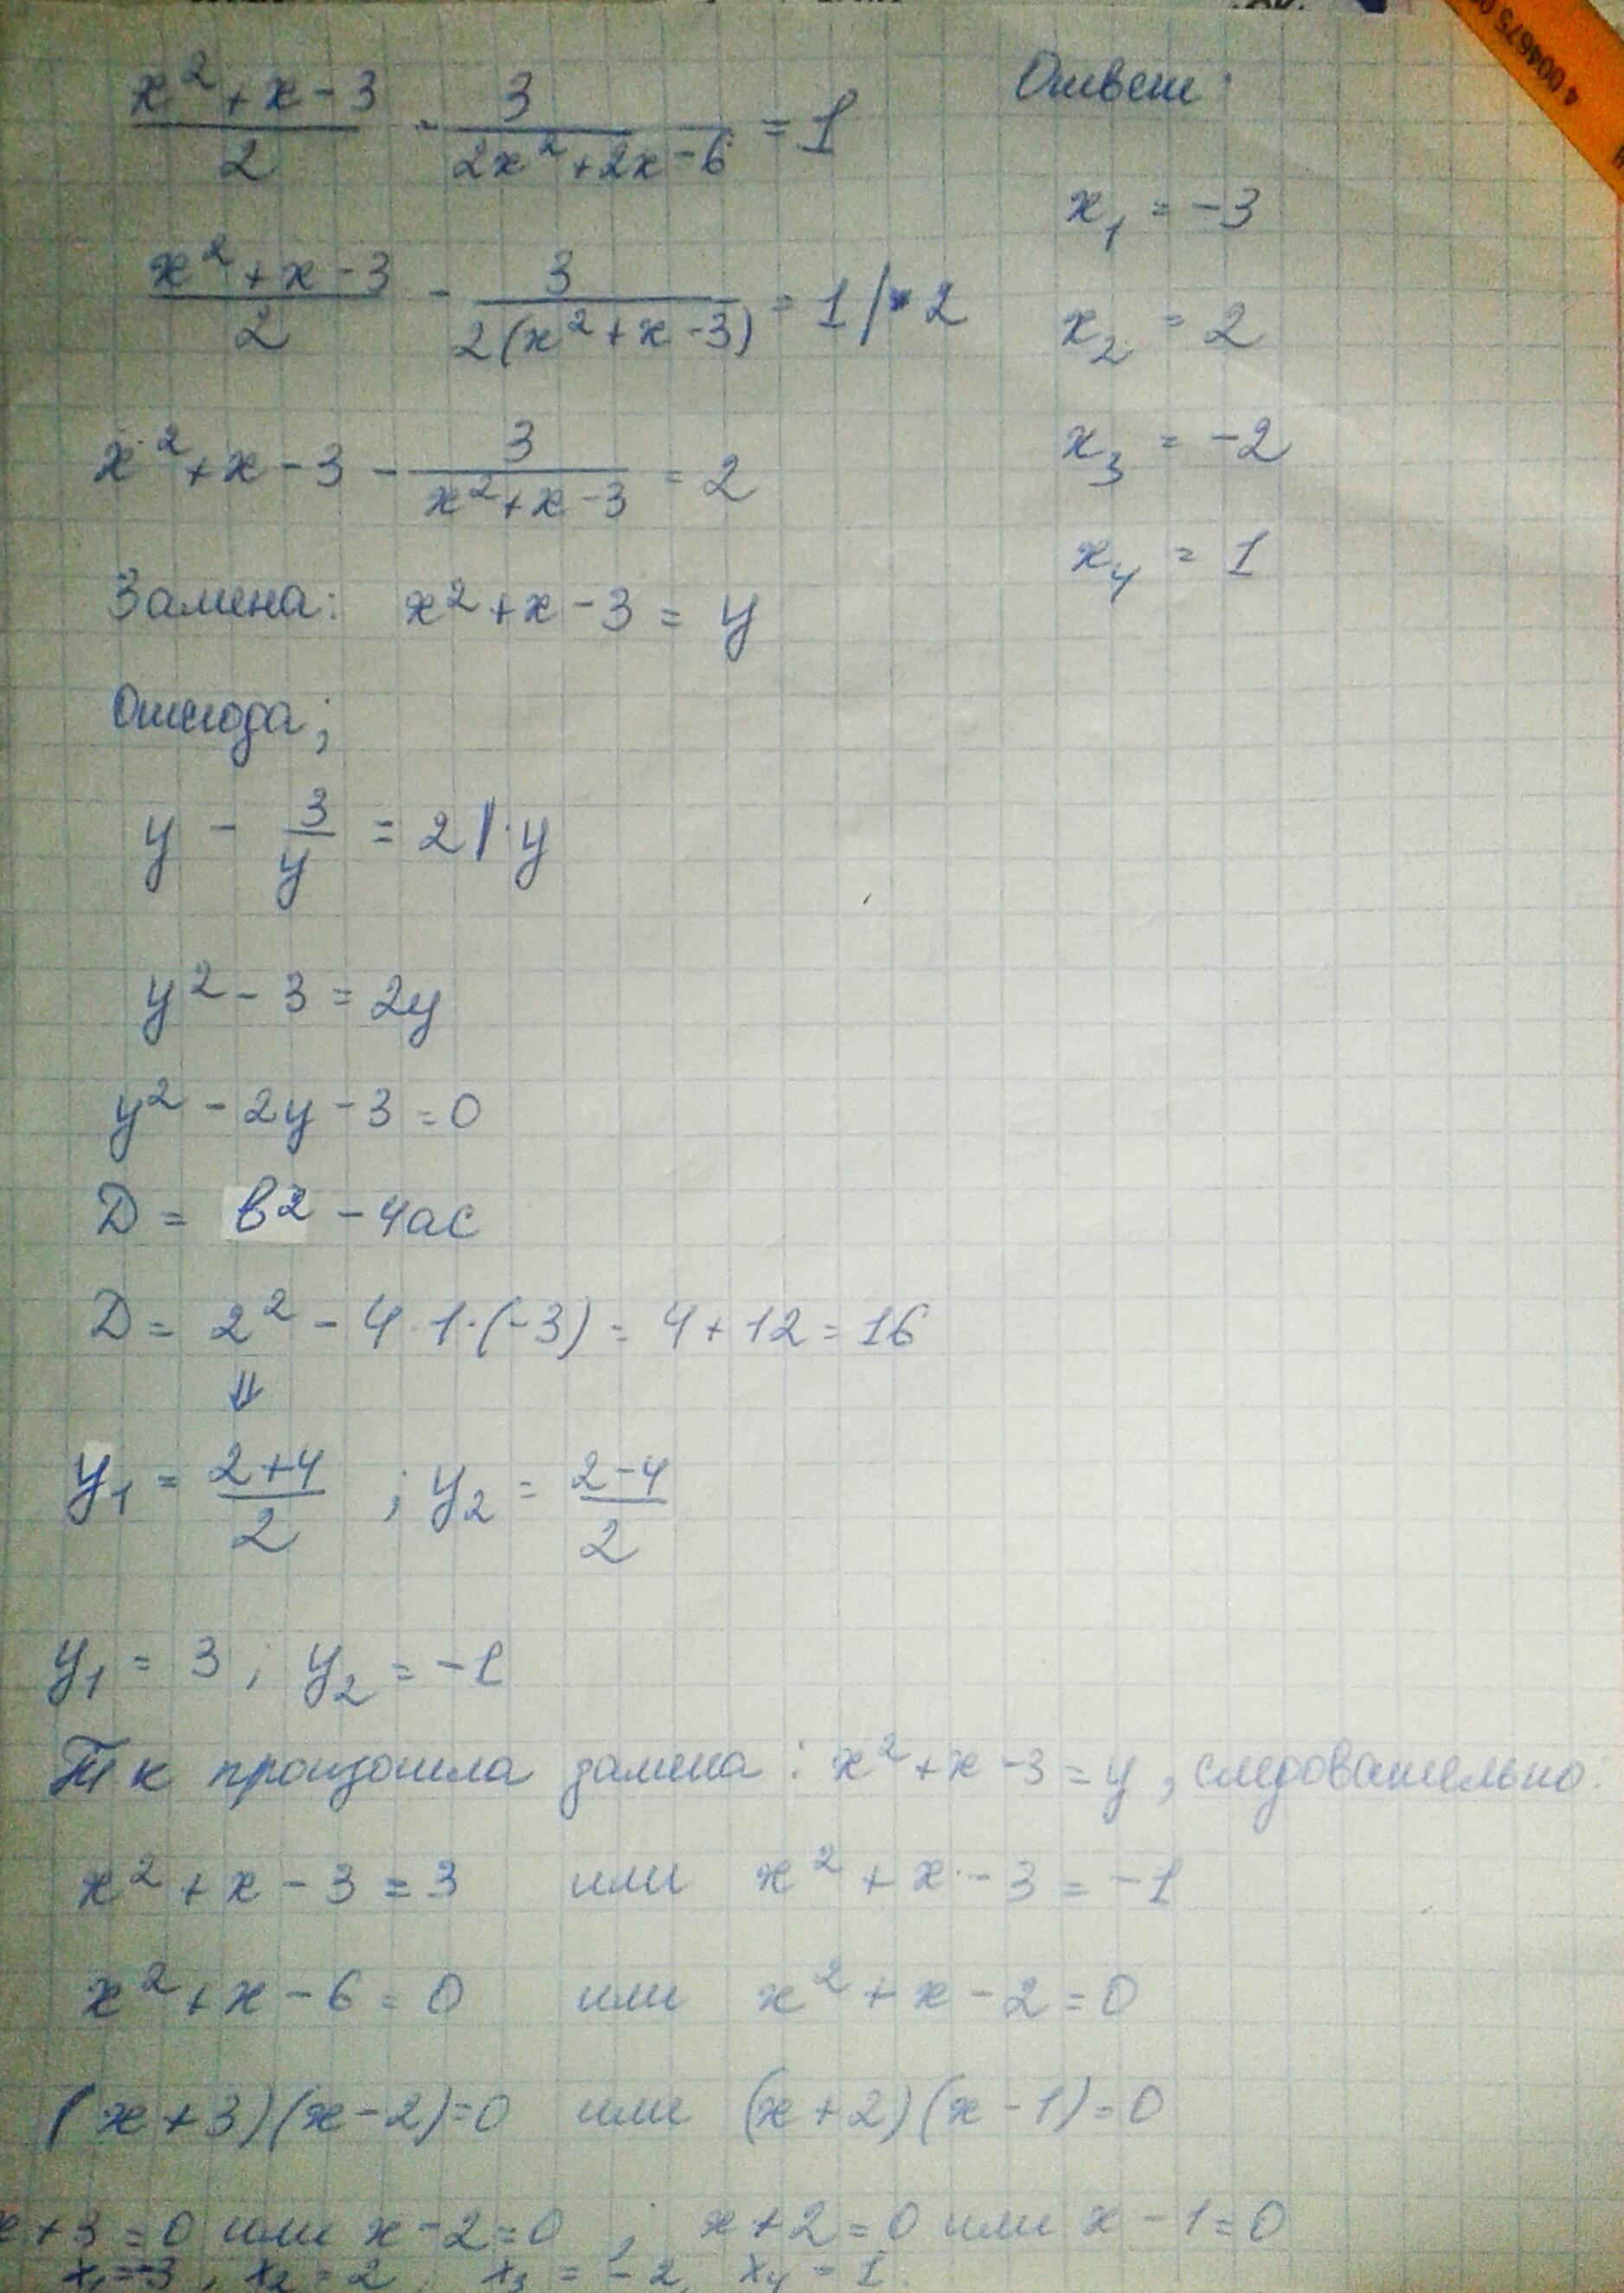 x² + x - 3 / 2 - 3 / 2x² + 2x - 6 = 1
x² + x - 3 / 2 - 3 / 2(x² + x - 3) = 1 | · 2
x² + x - 3 - 3 / x² + x - 3 = 2
Замена: x² + x - 3 = y
Отсюда;
y - 3 / y = 2 | · y
y² - 3 = 2y
y² - 2y - 3 = 0
D = b² - 4ac
D = 2² - 4 · 1 · (-3) = 4 + 12 = 16
⇓
y₁ = 2+4 / 2 ; y₂ = 2-4 / 2
y₁ = 3 ; y₂ = -1
Тк произошла замена: x² + x - 3 = y, следовательно:
x² + x - 3 = 3 или x² + x - 3 = -1
x² + x - 6 = 0 или x² + x - 2 = 0
(x + 3)(x - 2) = 0 или (x + 2)(x - 1) = 0
x + 3 = 0 или x - 2 = 0 ; x + 2 = 0 или x - 1 = 0
x₁ = -3, x₂ = 2, x₃ = -2, x₄ = 1
Ответ:
x₁ = -3
x₂ = 2
x₃ = -2
x₄ = 1